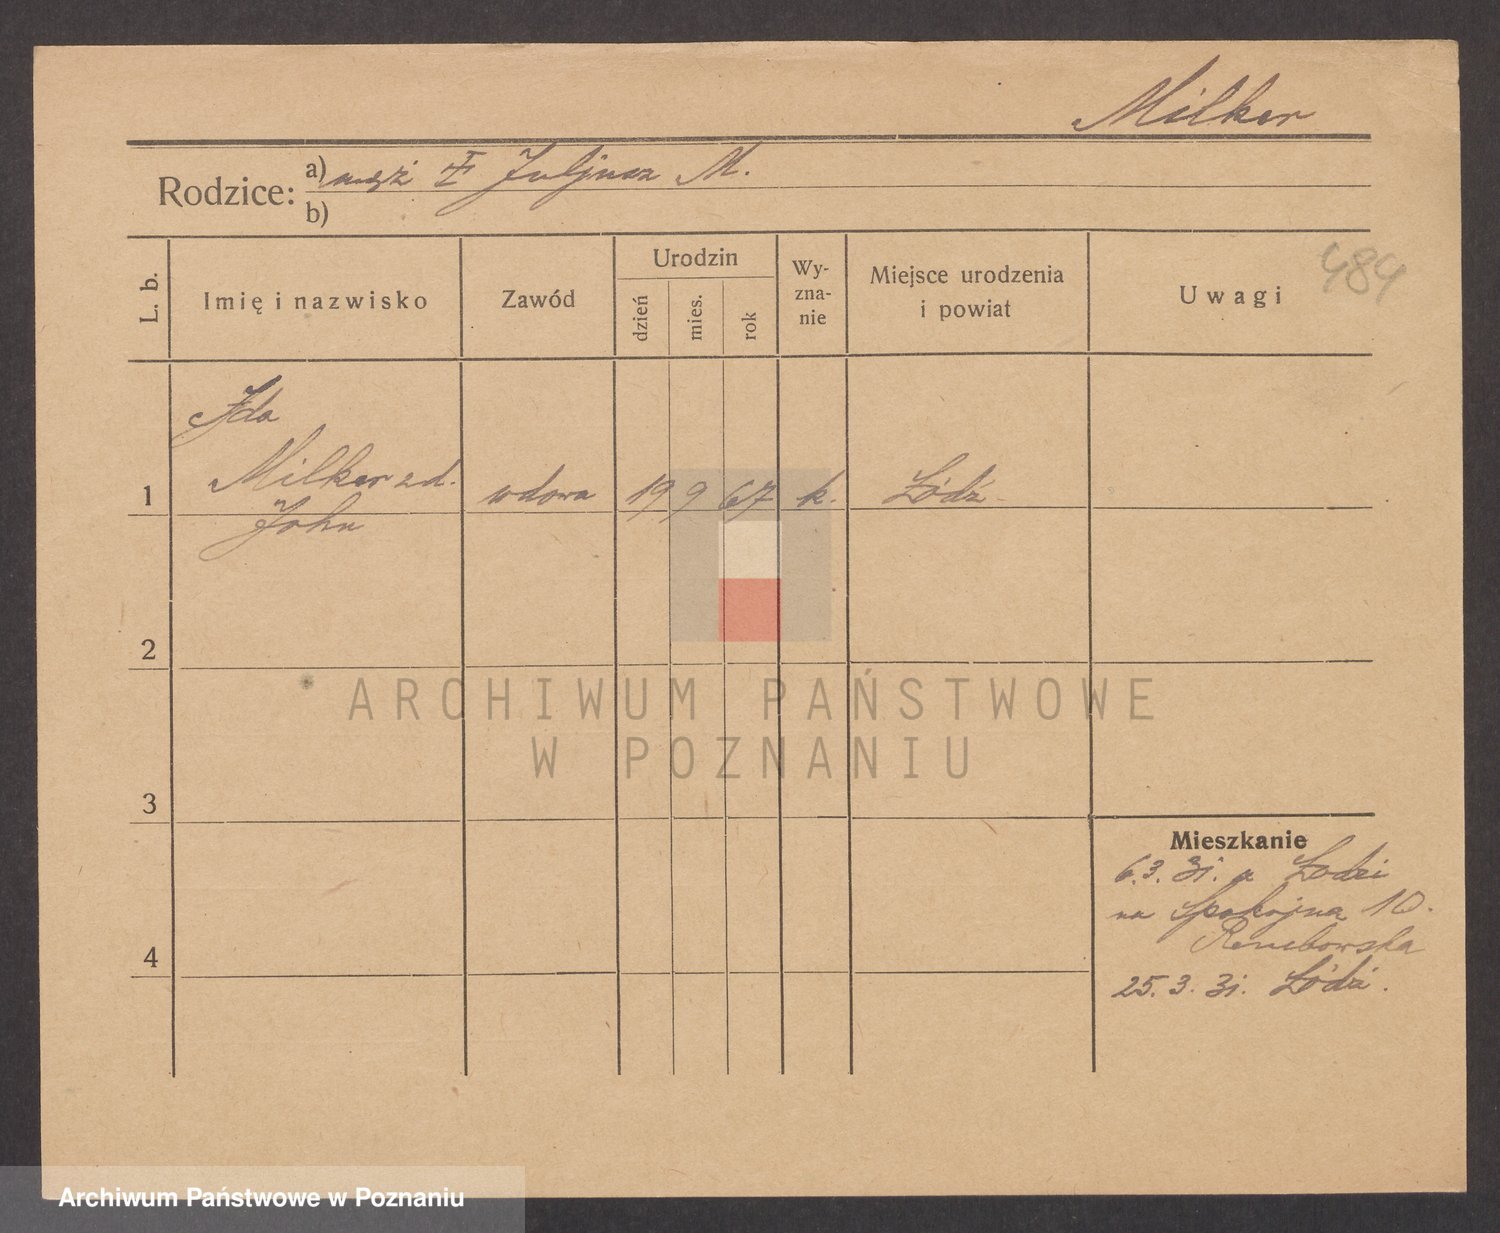 Milker
Rodzice:
a) mąż Juljusz M.
b)
L. b.
Imię i nazwisko
Zawód
Urodzin
dzień
mies.
rok
Wy-
zna-
nie
Miejsce urodzenia
i powiat
Uwagi
484
Ida
1 Milker zd. wdowa 19 9 67 k. Łódź
John
2
3
4
Mieszkanie
6. 3. 31. z Łodzi
na Spokojna 10.
25. 3. 31. Łódź.
ARCHIWUM PAŃSTWOWE
W POZNANIU
Archiwum Państwowe w Poznaniu